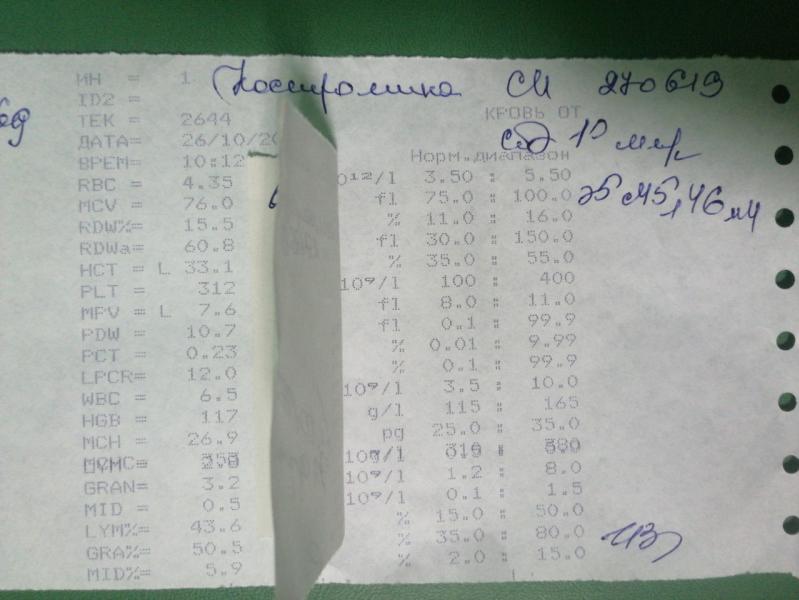 ИН = 1 Костромина СИ 270619
ID2 =
ТЕК = 2644 КРОВЬ ОТ
ДАТА= 26/10/20
ВРЕМ= 10:12 Норм.диапазон
RBC = 4.35 10¹²/l 3.50 : 5.50
MCV = 76.0 fl 75.0 : 100.0
RDW%= 15.5 % 11.0 : 16.0
RDWa= 60.8 fl 30.0 : 150.0
HCT = L 33.1 % 35.0 : 55.0
PLT = 312 10⁹/l 100 : 400
MPV = L 7.6 fl 8.0 : 11.0
PDW = 10.7 fl 0.1 : 99.9
PCT = 0.23 % 0.01 : 9.99
LPCR= 12.0 % 0.1 : 99.9
WBC = 6.5 10⁹/l 3.5 : 10.0
HGB = 117 g/l 115 : 165
MCH = 26.9 pg 25.0 : 35.0
GRAN= 3.2 10⁹/l 1.2 : 8.0
MID = 0.5 10⁹/l 0.1 : 1.5
LYM%= 43.6 % 15.0 : 50.0
GRA%= 50.5 % 35.0 : 80.0
MID%= 5.9 % 2.0 : 15.0